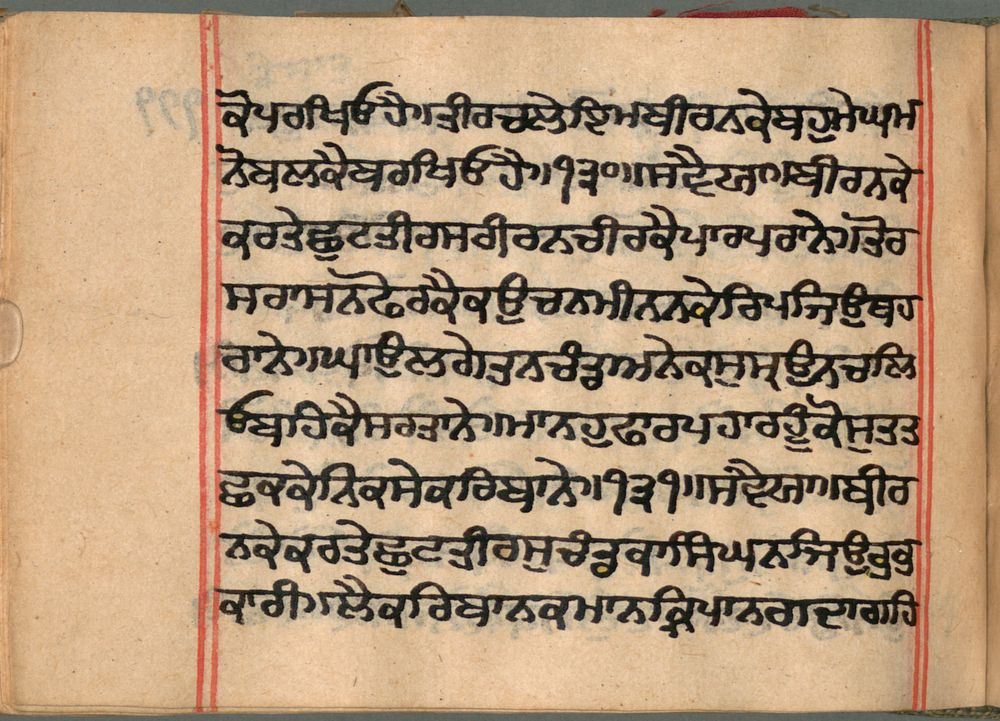 ਕੋਪਰਖਿਓਹੈ॥ਤੀਰਚਲੇਇਮਬੀਰਨਕੇਬਹੁਮੇਘਮ
ਨੋਬਲਕੈਬਰਖਿਓਹੈ॥੧੩੦॥ਸਵੈਯਾ॥ਬੀਰਨਕੇ
ਕਰਤੇਛੁਟਤੀਰਸਰੀਰਨਚੀਰਕੈਪਾਰਪਰਾਨੇ॥ਤੋਰ
ਸਰਾਸਨਫੋਰਕੈਕਉਚਨਮੀਨਨਕੇਰਿਪਜਿਉਥਹ
ਰਾਨੇ॥ਘਾਉਲਗੇਤਨਚੰਡਅਨੇਕਸੁਸ੍ਰਉਨਚਲਿ
ਓਬਹਿਕੈਸਰਤਾਨੇ॥ਮਾਨਹੁਫਾਰਪਹਾਰਹੂੰਕੋਸੁਤਤ
ਛਕਕੇਨਿਕਸੇਕਰਿਬਾਨੇ॥੧੩੧॥ਸਵੈਯਾ॥ਬੀਰ
ਨਕੇਕਰਤੇਛੁਟਤੀਰਸੁਚੰਡਕਾਸਿੰਘਨਜਿਉਭਭ
ਕਾਰੀ॥ਲੈਕਰਿਬਾਨਕਮਾਨਕ੍ਰਿਪਾਨਗਦਾਗਹਿ